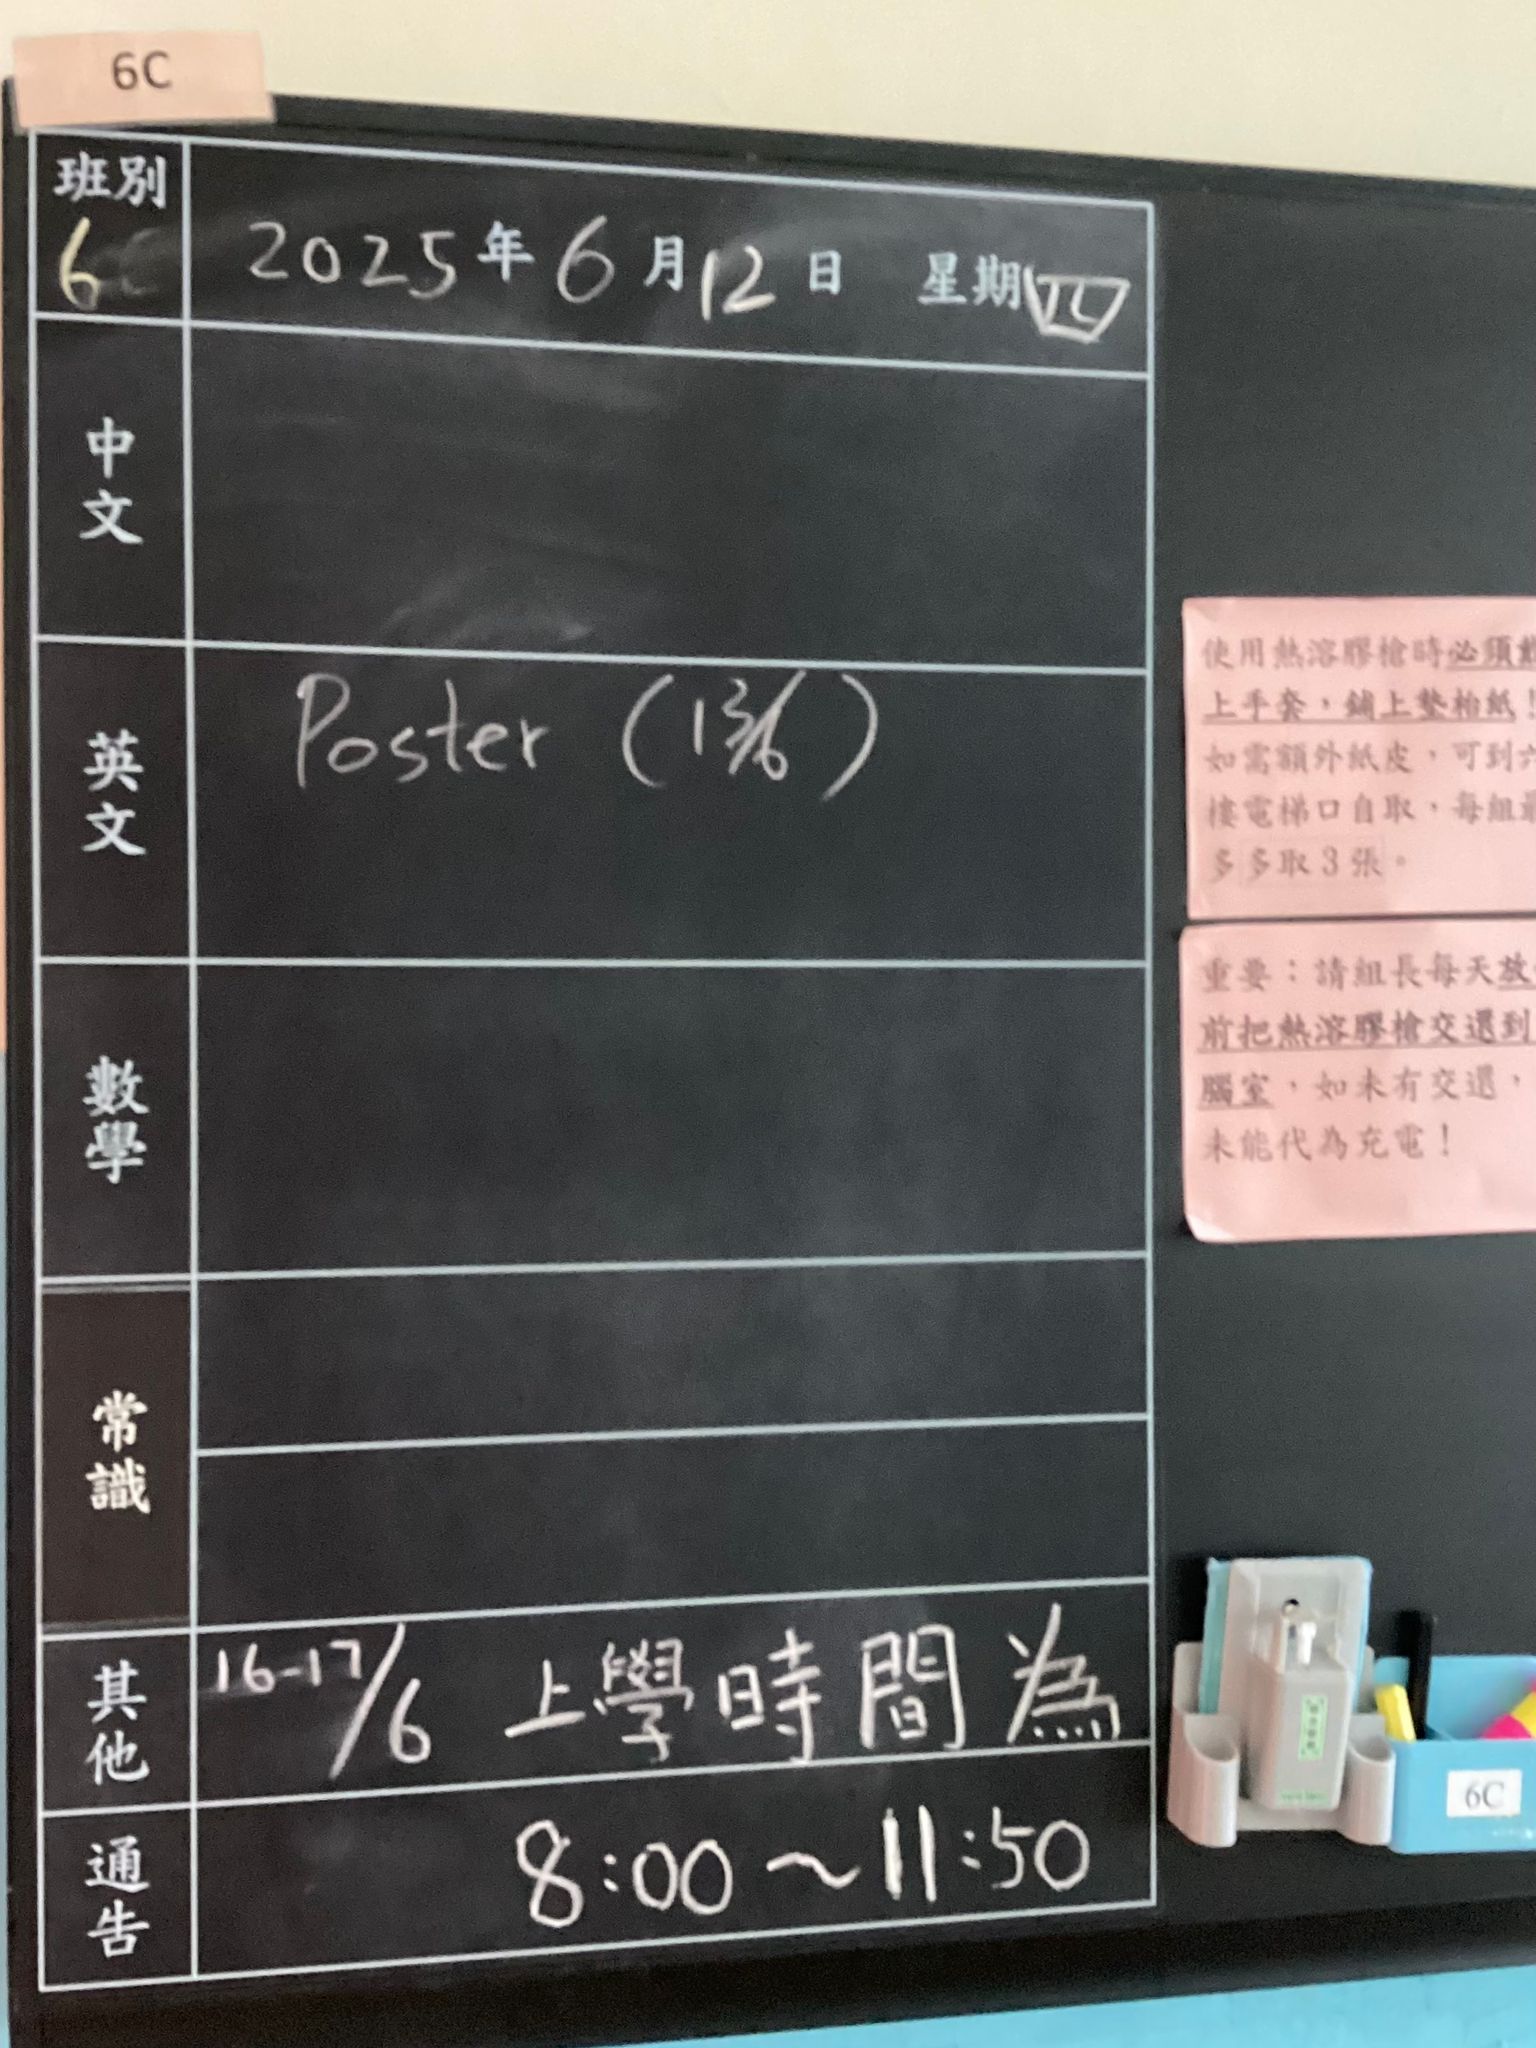 6C
班別
6C 2025年6月12日 星期四
中文
英文
Poster (13/6)
數學
常識
其他
16-17/6 上學時間為
通告
8:00~11:50
使用熱溶膠槍時必須
上手套,鋪上墊枱紙!
如需額外紙皮,可到六
樓電梯口自取,每組最
多多取3張。
重要:請組長每天放
前把熱溶膠槍交還到
腦室,如未有交還,
未能代為充電!
6C